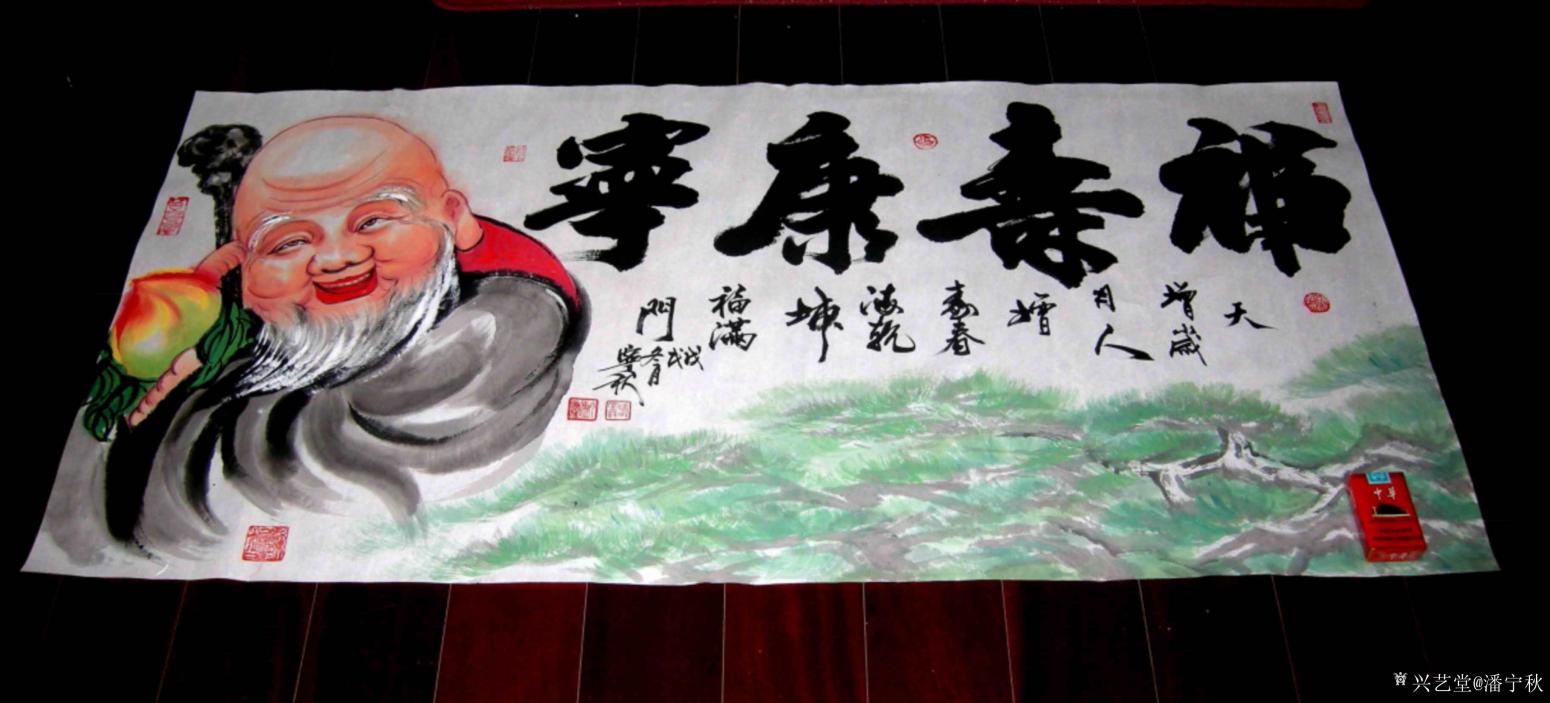 福壽康寧
天增歲月人增壽春滿乾坤福滿門
戊戌冬月
寧秋
中华
兴艺堂@潘宁秋